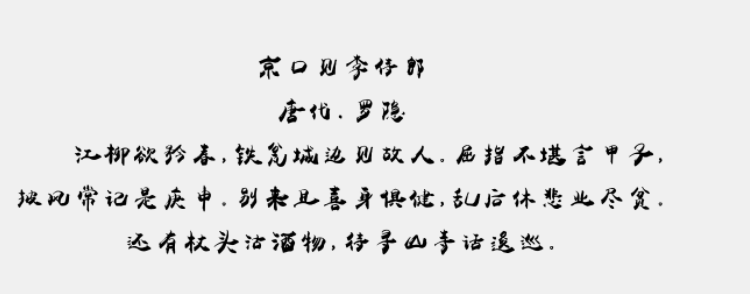 京口见李侍郎
唐代.罗隐
江柳欲矜春,铁瓮城边见故人。屈指不堪言甲子,
披风常记是庚申。别来且喜身俱健,乱后休悲业尽贫。
还有杖头沽酒物,待寻山寺话逡巡。